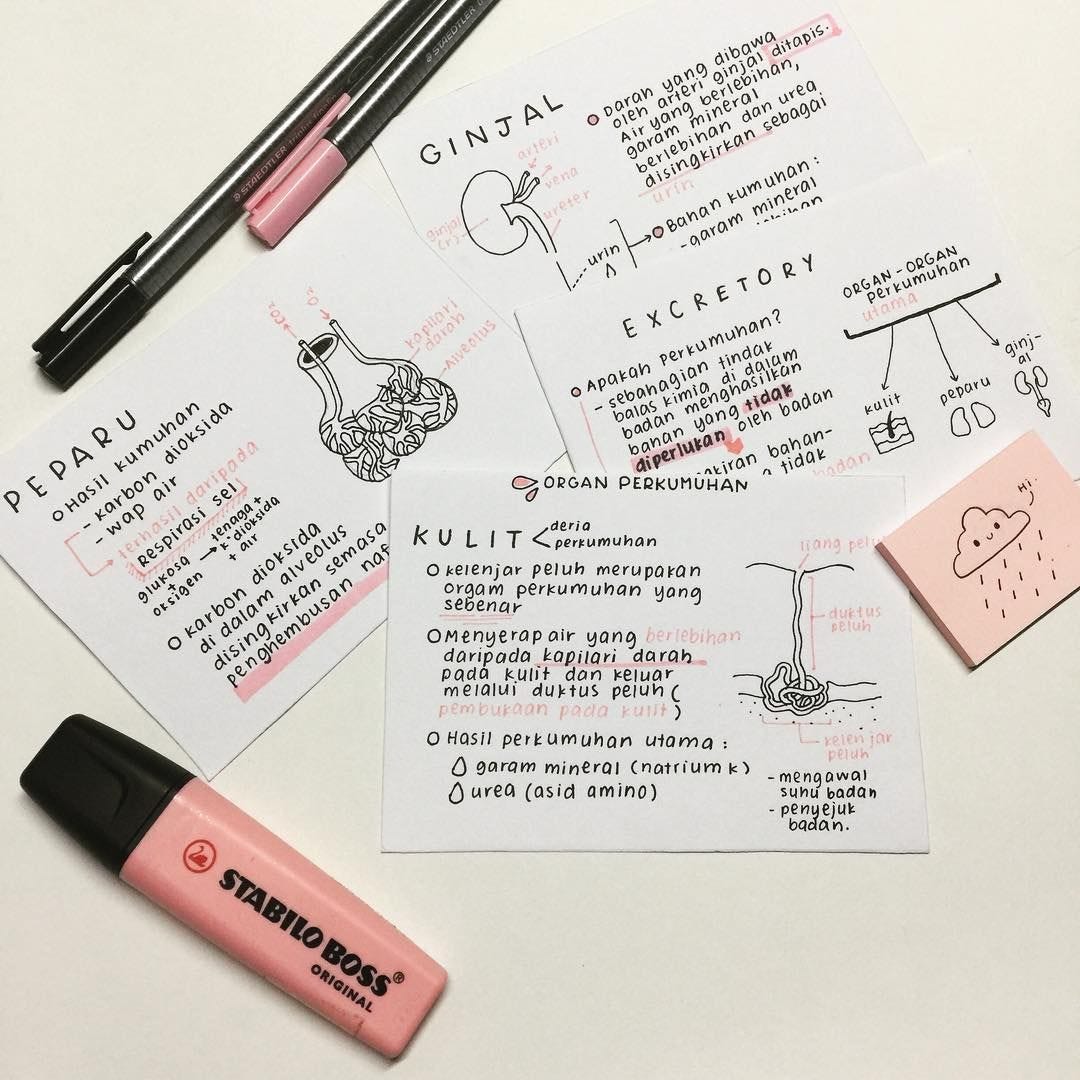 STAEDTLER triplus fineliner
STAEDTLER
GINJAL
arteri
vena
ureter
ginjal
(r)
urin
Darah yang dibawa
oleh arteri ginjal ditapis.
Air yang berlebihan,
garam mineral
berlebihan dan urea
disingkirkan sebagai
urin
Bahan kumuhan :
- garam mineral
EXCRETORY
Apakah perkumuhan?
- sebahagian tindak
balas kimia di dalam
badan menghasilkan
bahan yang tidak
diperlukan oleh badan
bahan-
tidak
badan
ORGAN-ORGAN
perkumuhan
utama
kulit
peparu
ginj-
al
PEPARU
Hasil kumuhan
- karbon dioksida
- wap air
terhasil daripada
Respirasi sel
glukosa → tenaga +
+ k·dioksida
oksigen + air
karbon dioksida
di dalam alveolus
disingkirkan semasa
penghembusan naf
CO₂
O₂
kapilari
darah
Alveolus
ORGAN PERKUMUHAN
KULIT < deria
perkumuhan
kelenjar peluh merupakan
orgam perkumuhan yang
sebenar
Menyerap air yang berlebihan
daripada kapilari darah
pada kulit dan keluar
melalui duktus peluh (
pembukaan pada kulit)
Hasil perkumuhan utama :
garam mineral (natrium k)
urea (asid amino)
liang pelu
duktus
peluh
kelenjar
peluh
- mengawal
suhu badan
- penyejuk
badan.
Hi.
STABILO BOSS®
ORIGINAL